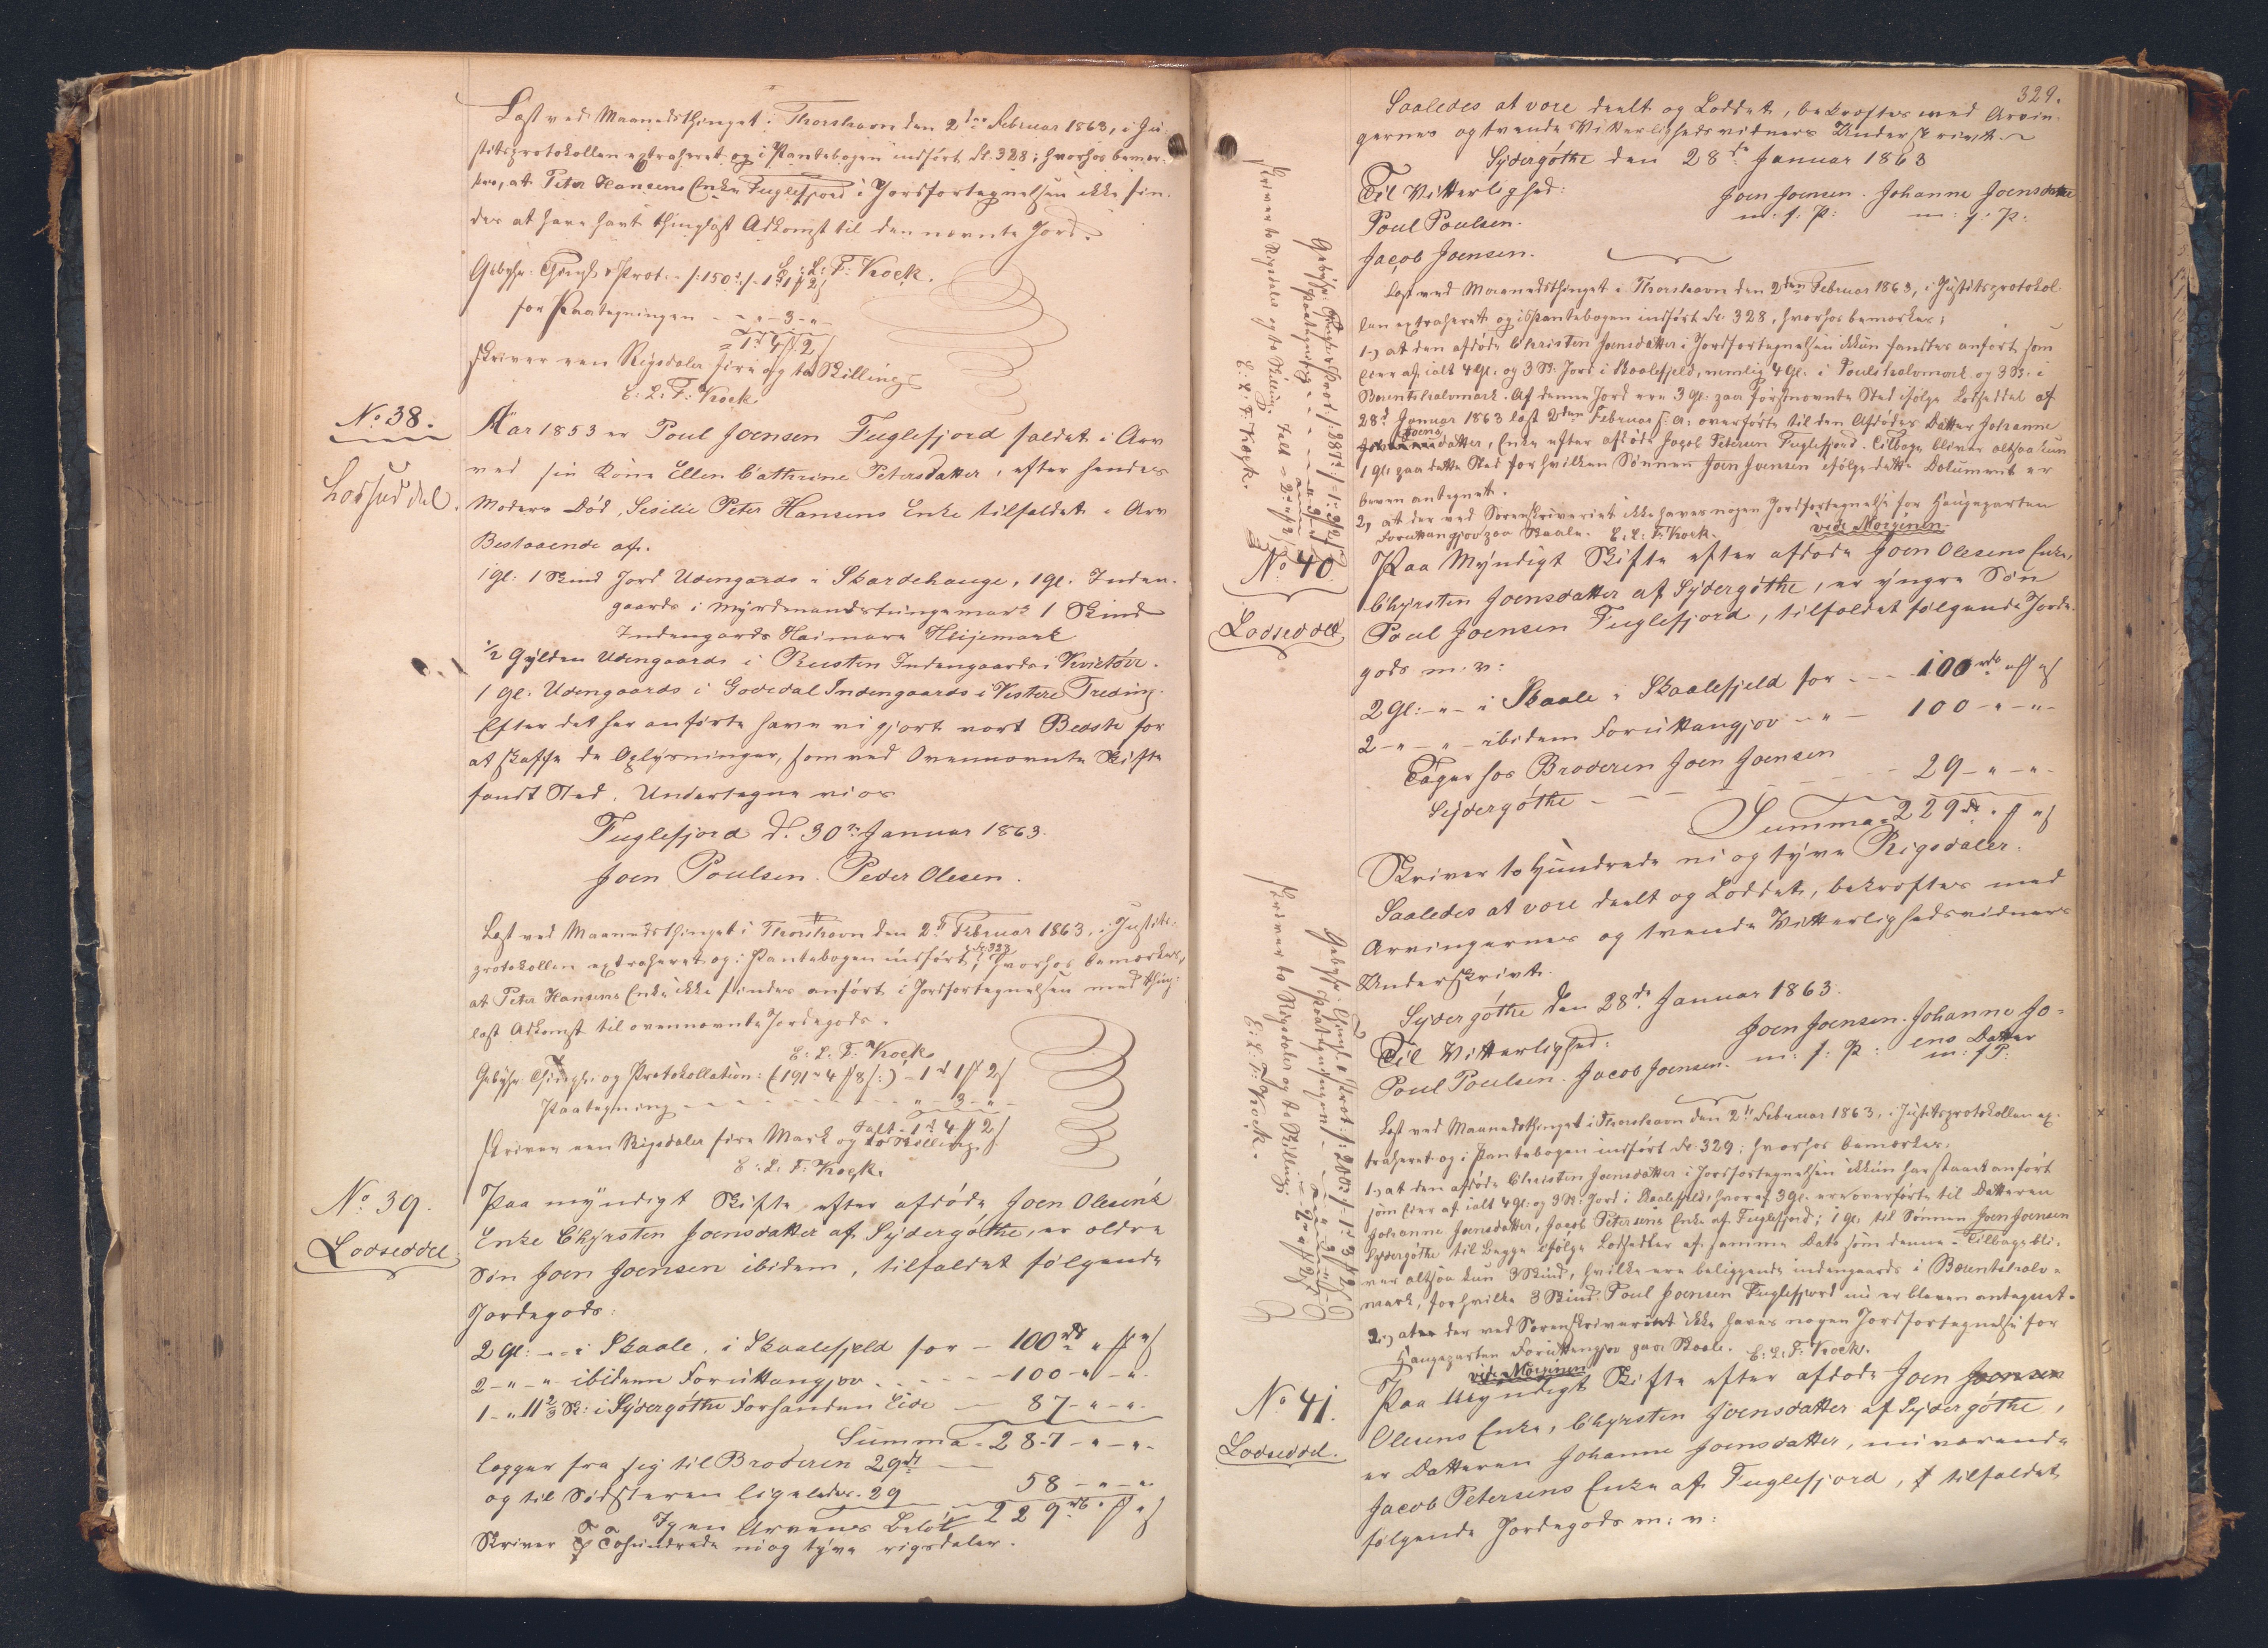 Læst ved Maanedsthinget i Thorshavn den 2den Februar 1863, i Ju-
stitsprotokollen extraheret og i Pantebogen indført Fr. 328; hvorhos bemær-
kes, at Peter Hansens Enke Fuglefjord i Jordfortegnelsen ikke fin-
des at have havt thinglæst Adkomst til den nævnte Jord.
E: L: F: Kock.
Gebyhr. Thingl: & Prot. /:150:/ - 1rd 1ß 2ß
for Paategningen - - " - 3 - " -
= 1rd 4ß 2ß
skriver een Rigsdaler fire og to Skilling
E: L: F: Kock
No. 38.
Lodseddel.
Aar 1853 er Poul Joensen Fuglefjord faldet i Arv
ved sin Kone Ellen Cathrine Petersdatter, efter hendes
Moders Død, Sisilie Peter Hansens Enke tilfaldet i Arv
Bestaaende af.
1 gl: 1 Skind Jord Udengards i Skardehauge, 1 gl. Inden-
gaards i Myrdmandstunge mark 1 Skind
Indengards Haimara Heijemark
1/2 Gylden Udengaards i Rusten Indengaards i Kvictóir.
1 gl. Udengaards i Godedal Indengaards i Vestere Treding.
Efter det her anførte have vi gjort vort Bedste for
at skaffe de Oplysninger, som ved Ovennævnte Skifte
fandt Sted. Undertegne vi os
Fuglefjord d. 30te Januar 1863.
Joen Poulsen. Peder Olesen.
Læst ved Maanedsthinget i Thorshavn den 2d Februar 1863, i Justits-
protokollen extraheret og i Pantebogen indført Fr. 328, hvorhos bemærkes,
at Peter Hansens Enke ikke findes anført i Jordfortegnelsen med thing-
læst Adkomst til ovennævnte Jordegods.
E: L: F: Kock
Gebyhr. Thingl: og Protokollation: (191 " 4ß 8ß:) - 1rd 1ß 2ß
Paategning - - - - - " - 3 - " -
Ialt - 1rd 4ß 2ß
skriver een Rigsdaler fire Mark og to Skilling.
E: L: F: Kock.
No. 39.
Lodseddel
Paa myndigt Skifte efter afdøde Joen Olesens
Enke Chyrsten Joensdatter af Sydergøthe, er ældre
Søn Joen Joensen ibidem, tilfaldet følgende
Jordegods:
2 gl: - " - i Skaale, i Skaalefjeld for - 100rd " ß " ß
2 - " - " - ibidem Foruttangjov - - - - 100 - " - " -
1 - " 11 2/3 Sk: i Sydergøthe Forhanden Eide - 87 - " - " -
Summa - 287 - " - " -
lægger fra sig til Broderen 29rd -
og til Södsteren ligeledes. 29 - 58 - " - " -
Igen Arvens Beløb 229rd " ß " ß
Skriver Tohundrede ni og tyve rigsdaler.
329.
Saaledes at være deelt og Loddet, bekræftes med Arvin-
gernes og tvende Vitterlighedsvidners Underskrivt.
Sydergøthe den 28de Januar 1863
Til Vitterlighed: Joen Joensen. Johanne Joensdatter
m: f: P: m: f: P:
Poul Poulsen.
Jacob Joensen.
Læst ved Maanedsthinget i Thorshavn den 2den Februar 1863, i Justitsprotokol-
len extraheret og i Pantebogen indført Fr. 328, hvorhos bemærkes:
1.) at den afdøde Christen Joensdatter i Jordfortegnelsen ikkun fandtes anført som
Eier af ialt 4 gl. og 3 Sk. Jord i Skaalefjeld, nemlig 4 gl. i Poulshalvmark og 3 Sk. i
Bærentshalvmark. Af denne Jord ere 3 gl. paa førstnævnte Sted ifølge Lodseddel af
28d Januar 1863 læst 2den Februar s: a: overførte til den Afdødes Datter Johanne
Joensdatter, Enke efter afdøde Jacob Petersen Fuglefjord. Tilbage bliver altsaa kun
1 gl. paa dette Sted for hvilken Sønnen Joen Joensen ifølge dette Dokument er
bleven antegnet.
2, at der ved Sorenskriveriet ikke haves nogen Jordfortegnelse for Haugeparten
Foruttangjov paa Skaale. E. L. F. Kock. vide Marginen
Gebyhr. Thingl: & Prot. /:287rd:/ = 1: 3ß 2ß
Paategning - - - " - 3 - " -
skriver to Rigsdaler og to Skilling. Ialt = 2rd " ß 2ß
E: L: F: Kock.
No. 40.
Lodseddel
Paa Myndigt Skifte efter afdøde Joen Olesens Enke,
Chyrsten Joensdatter af Sydergøthe, er yngre Søn
Poul Joensen Fuglefjord, tilfaldet følgende Jorde-
gods m. v:
2 gl: - " - i Skaale i Skaalefjeld for - - - 100rd " ß " ß
2 - " - " - ibidem Foruttangjov - " - 100 - " - " -
Tager hos Broderen Joen Joensen
Sydergøthe - - - - 29 - " - " -
Summa = 229rd " ß " ß
Skriver to Hundrede ni og tyve Rigsdaler.
Saaledes at være deelt og Loddet, bekræftes med
Arvingernes og tvende Vitterlighedsvidners
Underskrivt.
Sydergøthe den 28de Januar 1863.
Til Vitterlighed: Joen Joensen. Johanne Jo-
Poul Poulsen. Jacob Joensen. m: f: P: ens Datter
m: f: P:
Læst ved Maanedsthinget i Thorshavn den 2d Februar 1863, i Justitsprotokollen ex-
traheret og i Pantebogen indført Fr. 329; hvorhos bemærkes,
1.) at den afdøde Christen Joensdatter i Jordfortegnelsen ikkun har staaet anført
som Eier af ialt 4 gl. og 3 Sk. Jord i Skaalefjeld, hvoraf 3 gl. ere overførte til Datteren
Johanne Joensdatter, Jacob Petersens Enke af Fuglefjord; 1 gl. til Sønnen Joen Joensen
Sydergøthe til Begge ifølge Lodsedler af samme Dato som denne. Tilbage bli-
ver altsaa kun 3 Skind, hvilke ere beliggende indengaards i Bærentshalv-
mark, for hvilke 3 Skind Poul Joensen Fuglefjord nu er bleven antegnet.
2.) at der ved Sorenskriveriet ikke haves nogen Jordfortegnelse for
Haugeparten Foruttangjov paa Skaale. E: L: F: Kock.
vide Marginen
Gebyhr. Thingl. & Prot: /: 200:/ - 1rd 3ß 2ß
Paategningen - - - " - 3 - " -
skriver to Rigsdaler og to Skilling = 2 - " ß 2ß
E: L: F: Kock.
No 41.
Lodseddel.
Paa Myndigt Skifte efter afdøde Joen Joensen
Olesens Enke, Chyrsten Joensdatter af Sydergøthe,
er Datteren Johanne Joensdatter, nuværende
Jacob Petersens Enke af Fuglefjord, tilfaldet
følgende Jordegods m: v: